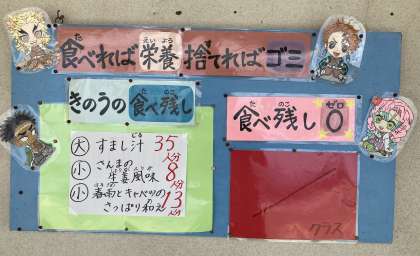 食べれば栄養 捨てればゴミ
きのうの食べ残し
大 すまし汁 35人分
小 さんまの生姜風味 8人分
小 春雨とキャベツのさっぱり和え 13人分
食べ残し0
クラス